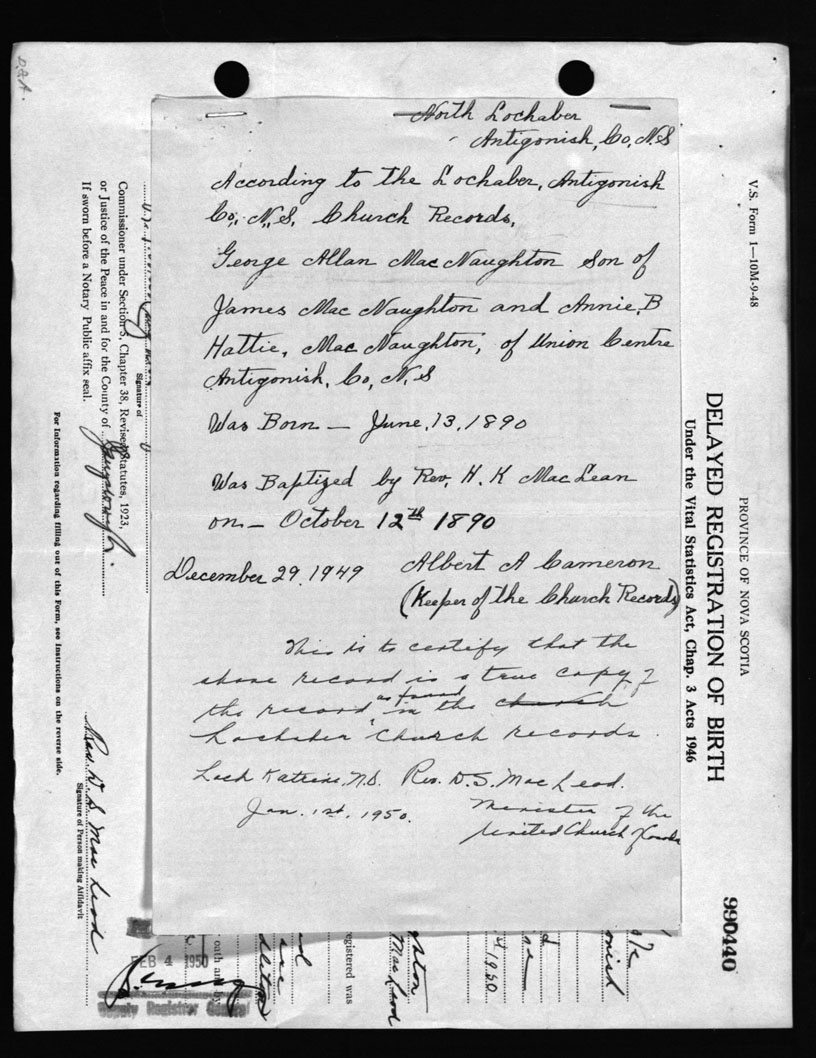 D.&A.
North Lochaber
Antigonish, Co, N.S
According to the Lochaber, Antigonish
Co., N.S, Church Records,
George Allan MacNaughton Son of
James Mac Naughton and Annie, B
Hattie, Mac Naughton, of Union Centre
Antigonish, Co, N.S
Was Born – June, 13, 1890
Was Baptized by Rev, H. K MacLean
on – October 12th 1890
December 29, 1949 Albert A Cameron
(Keeper of the Church Records)
This is to certify that the
above record is a true copy of
as found
the record in the church
Lochaber Church records.
Loch Katrine, N.S. Rev. D.S. MacLeod.
Jan. 1st, 1950. Minister of the
United Church of Canada
V.S. Form 1—10M-9-48
PROVINCE OF NOVA SCOTIA
DELAYED REGISTRATION OF BIRTH
Under the Vital Statistics Act, Chap. 3 Acts 1946
990440
Signature of
Commissioner under Section 3, Chapter 38, Revised Statutes, 1923,
or Justice of the Peace in and for the County of Guysborough.
If sworn before a Notary Public affix seal.
For information regarding filling out of this Form, see instructions on the reverse side.
Rev. D S Mac Leod
Signature of Person making Affidavit
onish
st 1950
ghton
Mac Leod
registered was
oath and by
FEB 4 1950
Deputy Registrar General